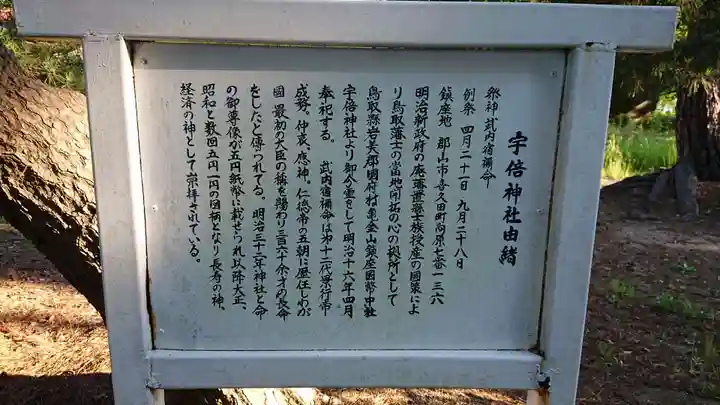 宇倍神社由緒
祭神 武内宿禰命
例祭 四月二十一日 九月二十八日
鎮座地 郡山市喜久田町向原七番一三六
明治新政府の廃藩置県士族授産の国策によ
り鳥取藩士の当地開拓の心の拠所として
鳥取県岩美郡国府村亀金山鎮座国幣中社
宇倍神社より御分霊をして明治十六年四月
奉祀する。 武内宿禰命は第十二代景行帝
成務、仲哀、應神、仁徳帝の五朝に歴任しわが
国最初の大臣の称を賜わり三百六十余才の長命
をしたと傳つられてる。明治三十二年神社と命
の御尊像が五円紙幣に載せられ以降大正、
昭和と数回五円一円の図柄となり長寿の神、
経済の神として崇拝されている。